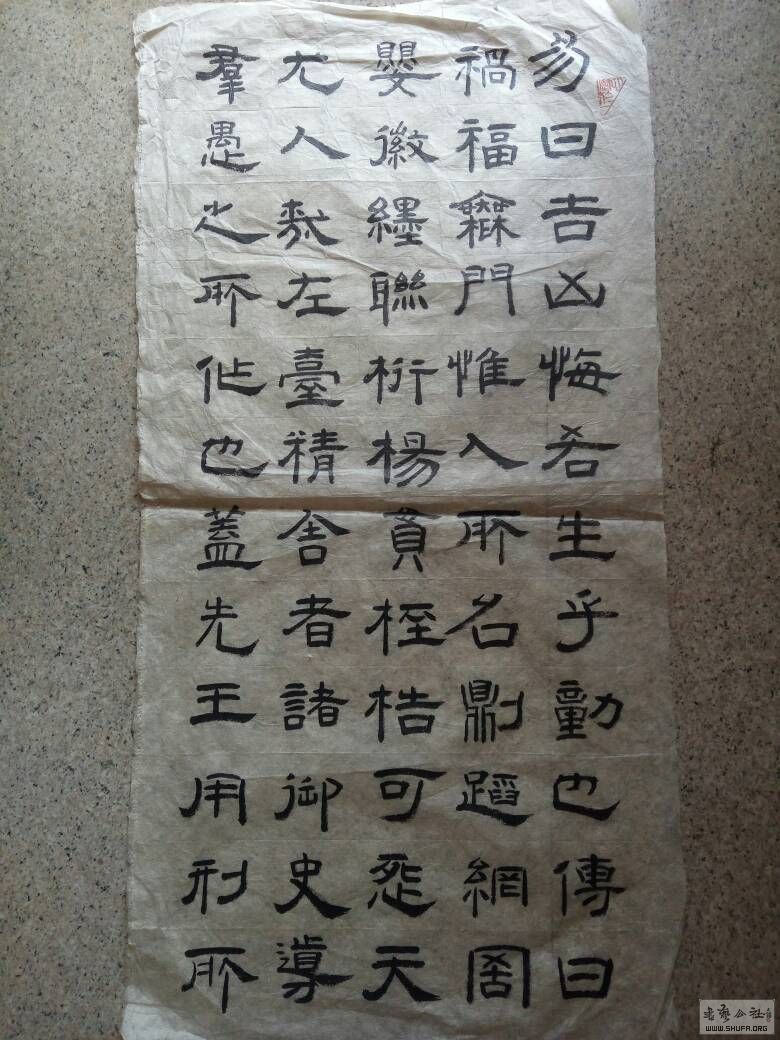 易曰吉凶悔吝生乎動也傳曰
禍福無門惟人所名則蹈網罟
嬰徽纆聯桁楊貫桎梏可怨天
尤人哉左臺精舍者諸御史導
羣愚之所作也蓋先王用刑所
书艺公社
WWW.SHUFA.ORG